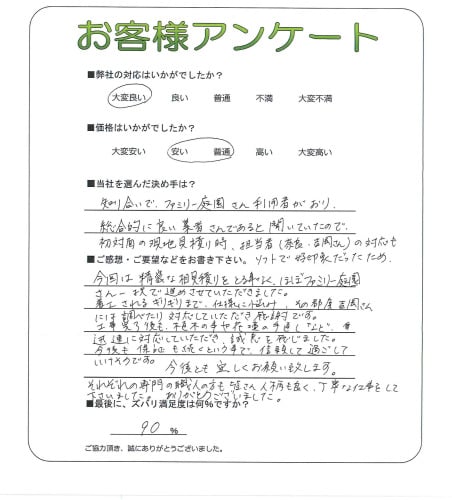 お客様アンケート
■弊社の対応はいかがでしたか？
大変良い 良い 普通 不満 大変不満
■価格はいかがでしたか？
大変安い 安い 普通 高い 大変高い
■当社を選んだ決め手は？
知り合いで、ファミリー庭園さん利用者がおり、
総合的に良い業者さんであると聞いていたので、
初対面の現地見積り時、担当者(奈良・吉岡さん)の対応も
■ご感想・ご要望などをお書き下さい。ソフトで好印象だったため、
今回は精密な相見積りをとる事なく、ほぼファミリー庭園
さん一択で進めさせていただきました。
着工されるギリギリまで、仕様に悩み、その都度吉岡さん
には調べたり対応していただき感謝です。
工事完了後も、植木の事や
迅速に対応していただき、誠意を感じました。
今後も保証も続くという事で、信頼して過ごして
いけそうです。 今後とも宜しくお願い致します。
それぞれの専門の職人の方も皆さん人柄も良く、丁寧な仕事をして
下さいました。ありがとうございました。
■最後に、ズバリ満足度は何%ですか？
90 %
ご協力頂き、誠にありがとうございました。